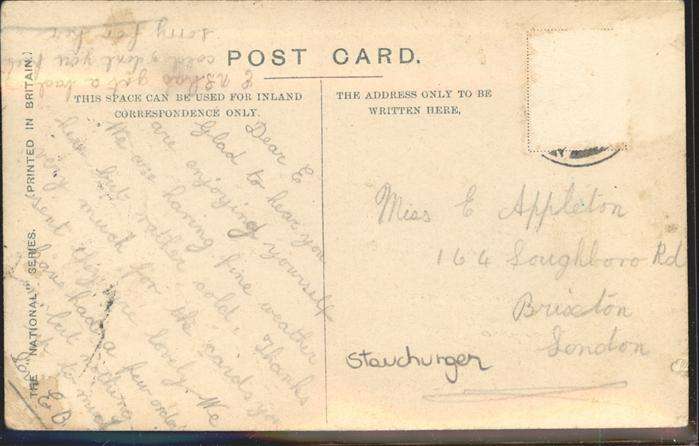 POST CARD.
THIS SPACE CAN BE USED FOR INLAND
CORRESPONDENCE ONLY.
THE ADDRESS ONLY TO BE
WRITTEN HERE,
THE "NATIONAL" SERIES. (PRINTED IN BRITAIN.)
Dear E
Glad to hear you
are enjoying yourself
We are having fine weather
here but rather cold. Thanks
very much for the cards you
sent they are lovely. We
have had a few
but nothing
to much
E B
E has got a bad
cold, dont you feel
sorry for her
Miss E Appleton
164 Loughboro Rd
Brixton
London
Stauchurger